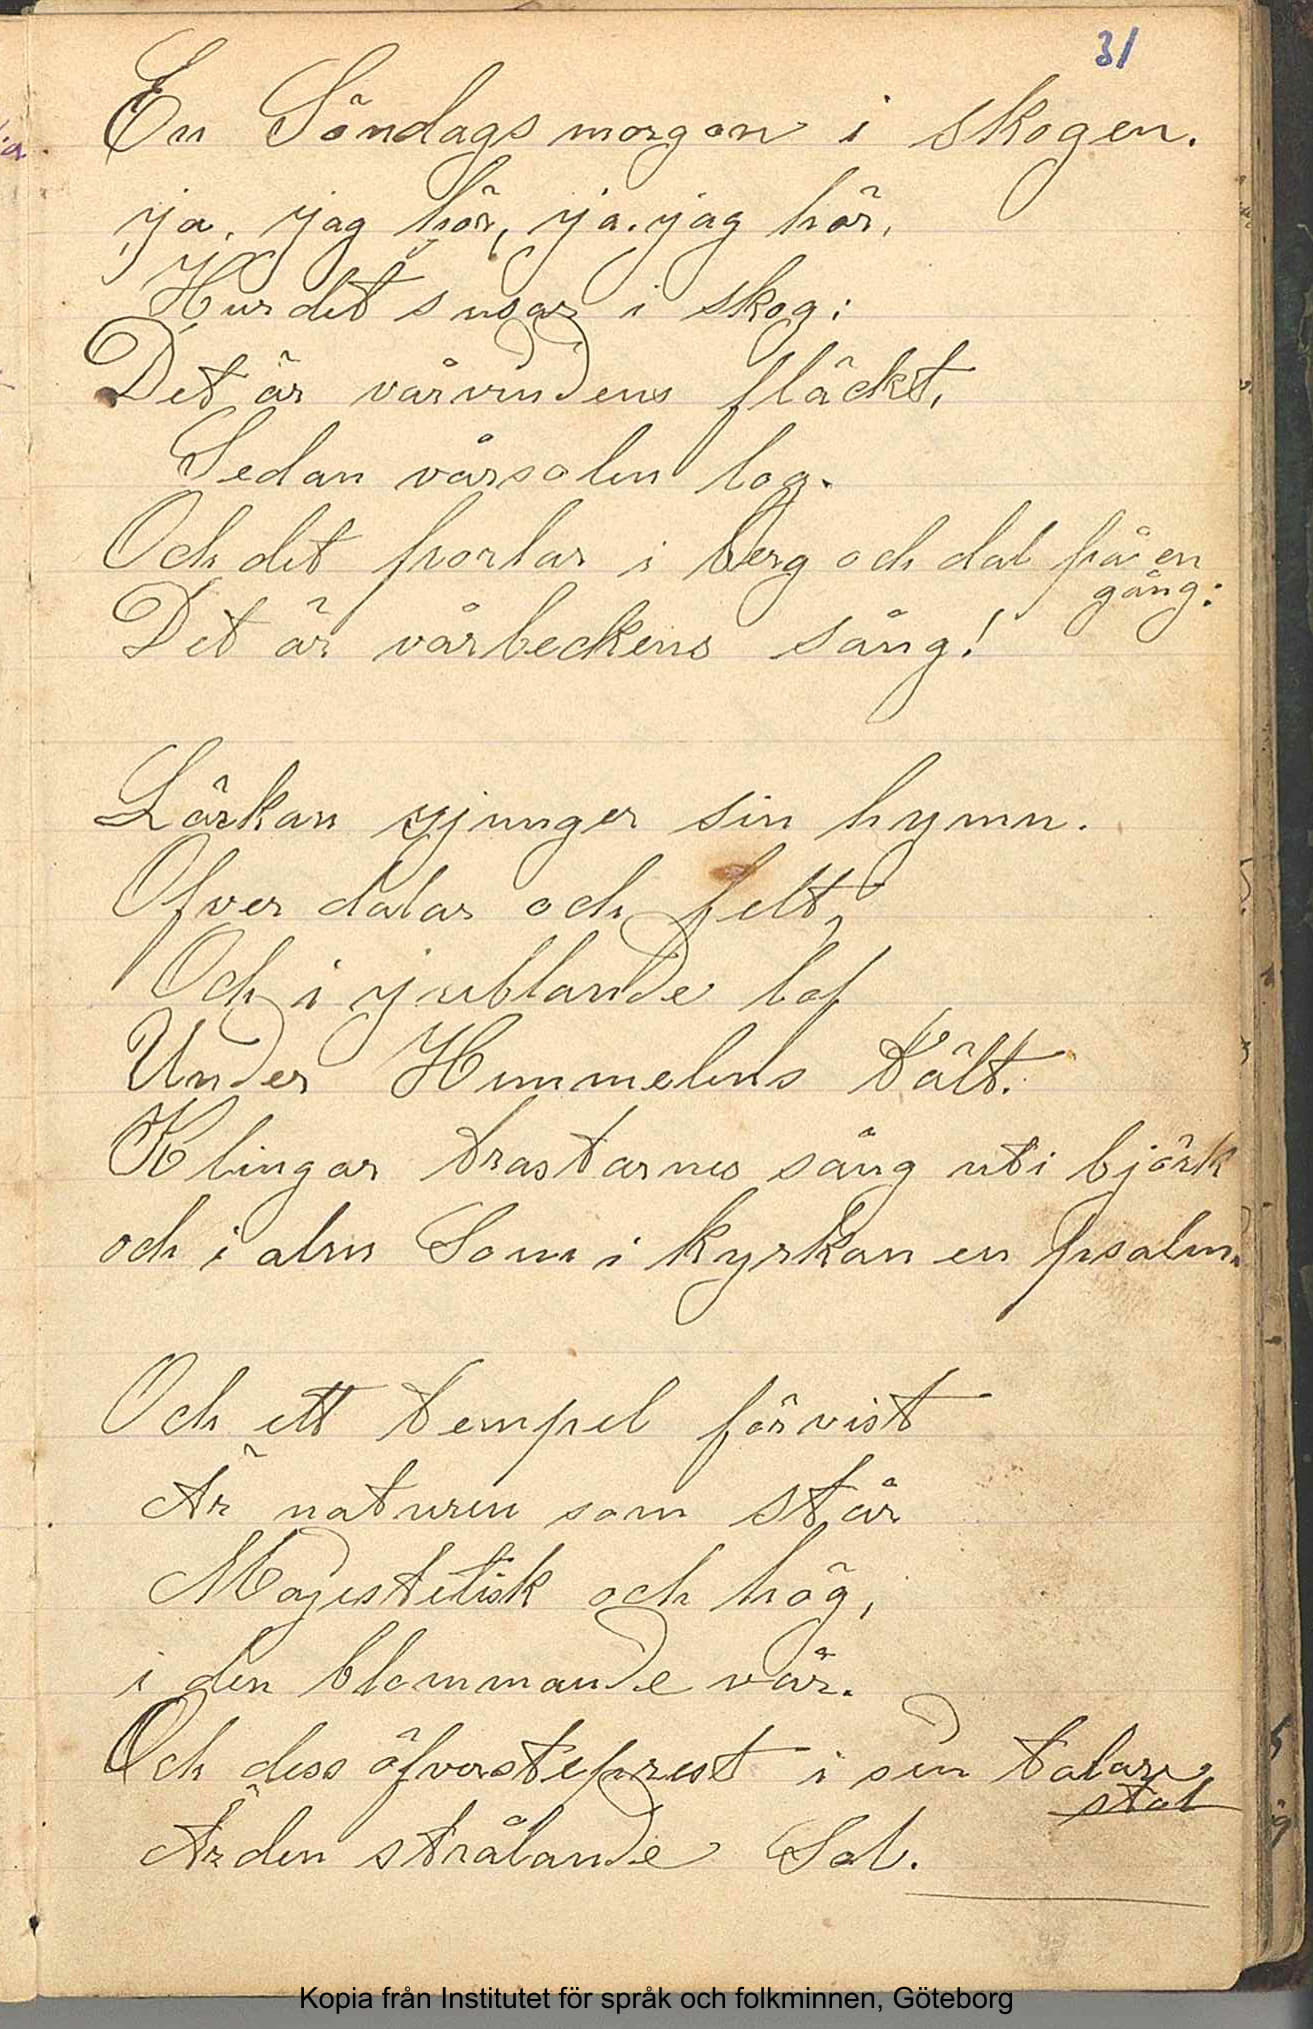 31
En Söndags morgon i skogen.
ja, jag hör, ja. jag hör,
Hur det susar i skog:
Det är vårvindens fläckt,
Sedan vårsolen log.
Och det porlar i berg och dal på en
gång:
Det är vårbeckens sång!
Lärkan sjunger sin hymn.
Öfver dalar och felt,
Och i jublande lof
Under Himmelens tält.
Klingar trastarnes sång uti björk
och i alm Som i kyrkan en psalm.
Och ett tempel förvist
Är naturen som står
Majestetisk och hög,
i den blommande vår.
Och dess öfversteprest i sin talare
stol
Är den strålande Sol.
Kopia från Institutet för språk och folkminnen, Göteborg